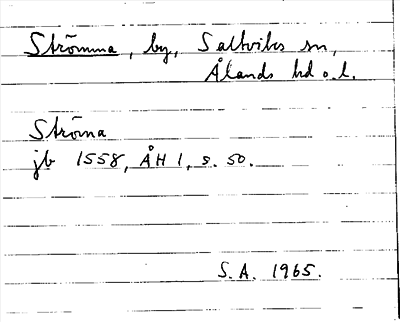 Strömma, by, Saltviks sn,
Ålands hd o. l.
Ströma
jb 1558, ÅH 1, s. 50.
S.A. 1965.